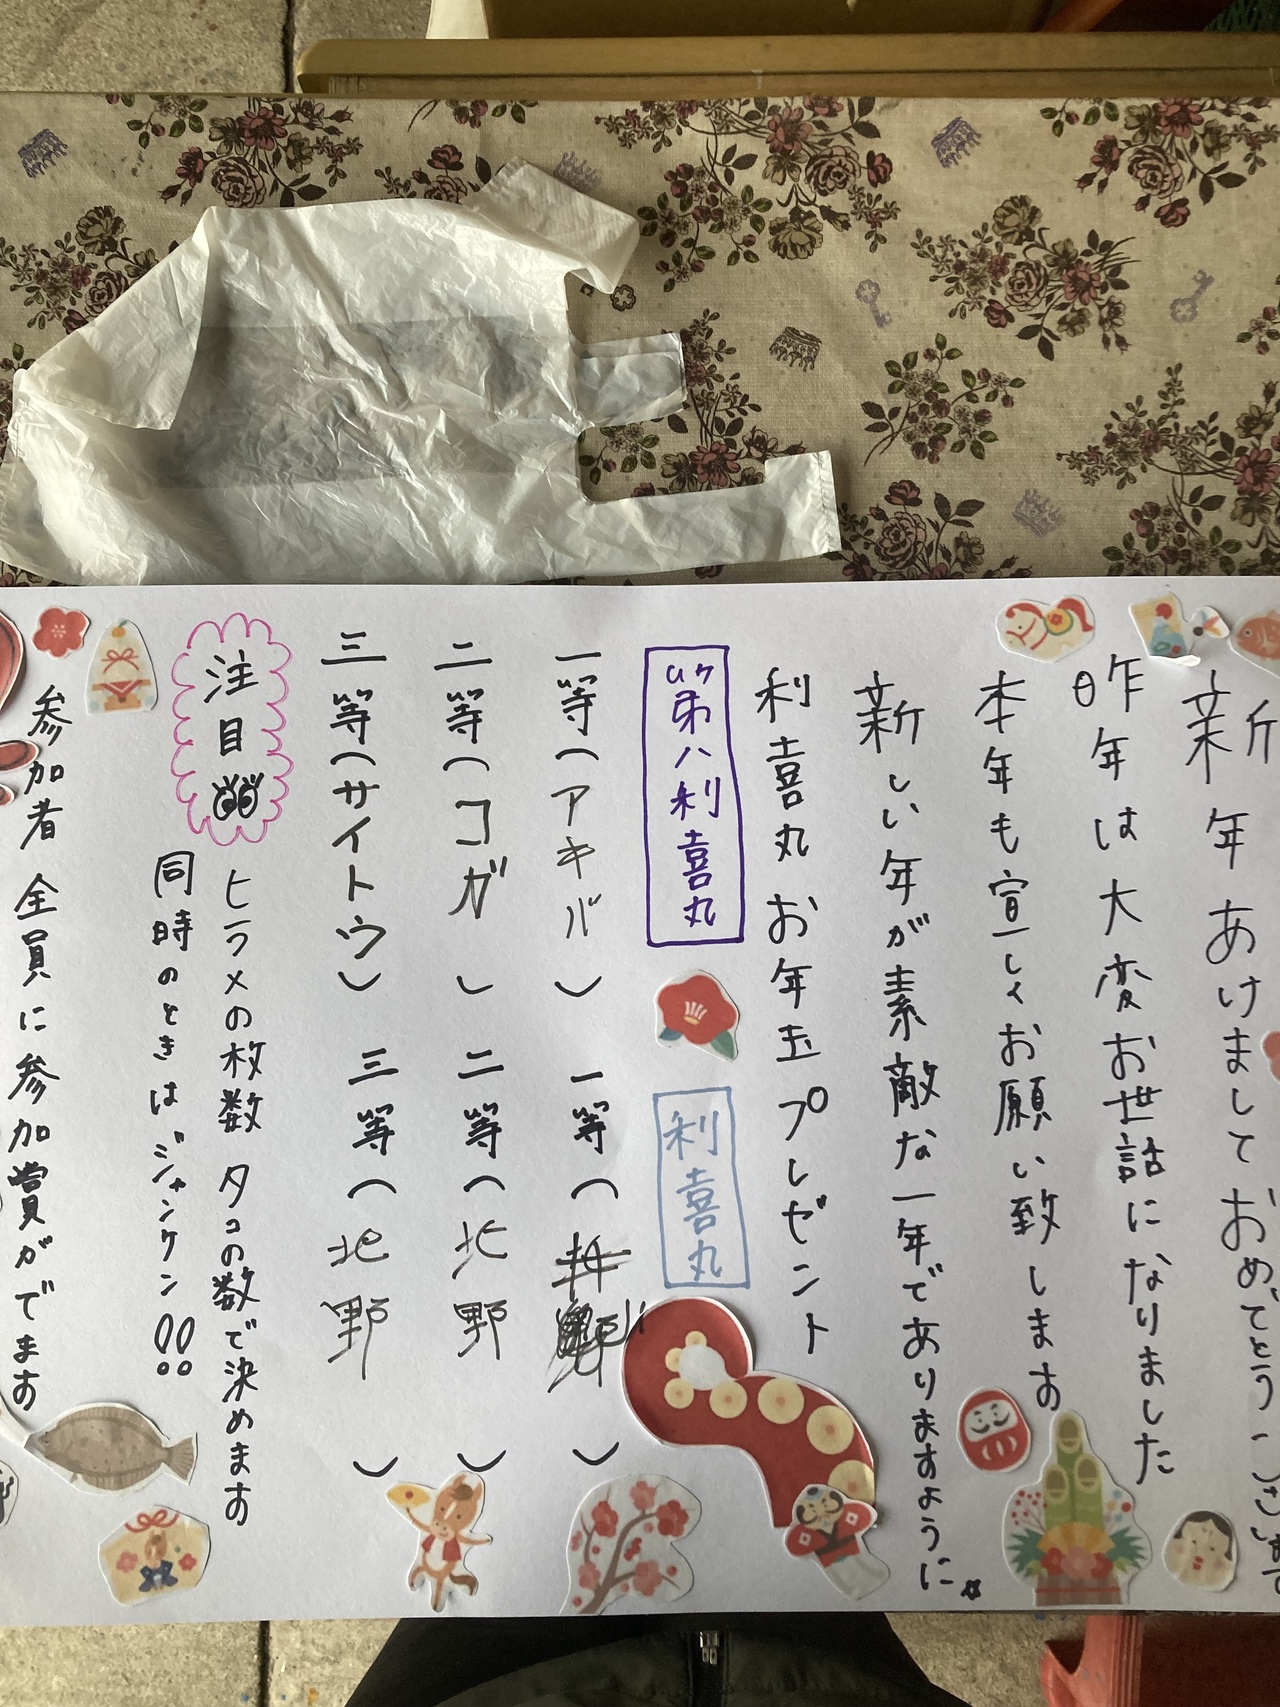 新年あけましておめでとうござ
昨年は大変お世話になりました
本年も宜しくお願い致します
新しい年が素敵な一年でありますように
利喜丸お年玉プレゼント
第八利喜丸
一等(アキバ)
二等(コガ)
三等(サイトウ)
利喜丸
一等( )
二等(北野)
三等(北野)
注目
ヒラメの枚数 タコの数で決めます
同時のときはジャンケン!!
参加者全員に参加賞がでます